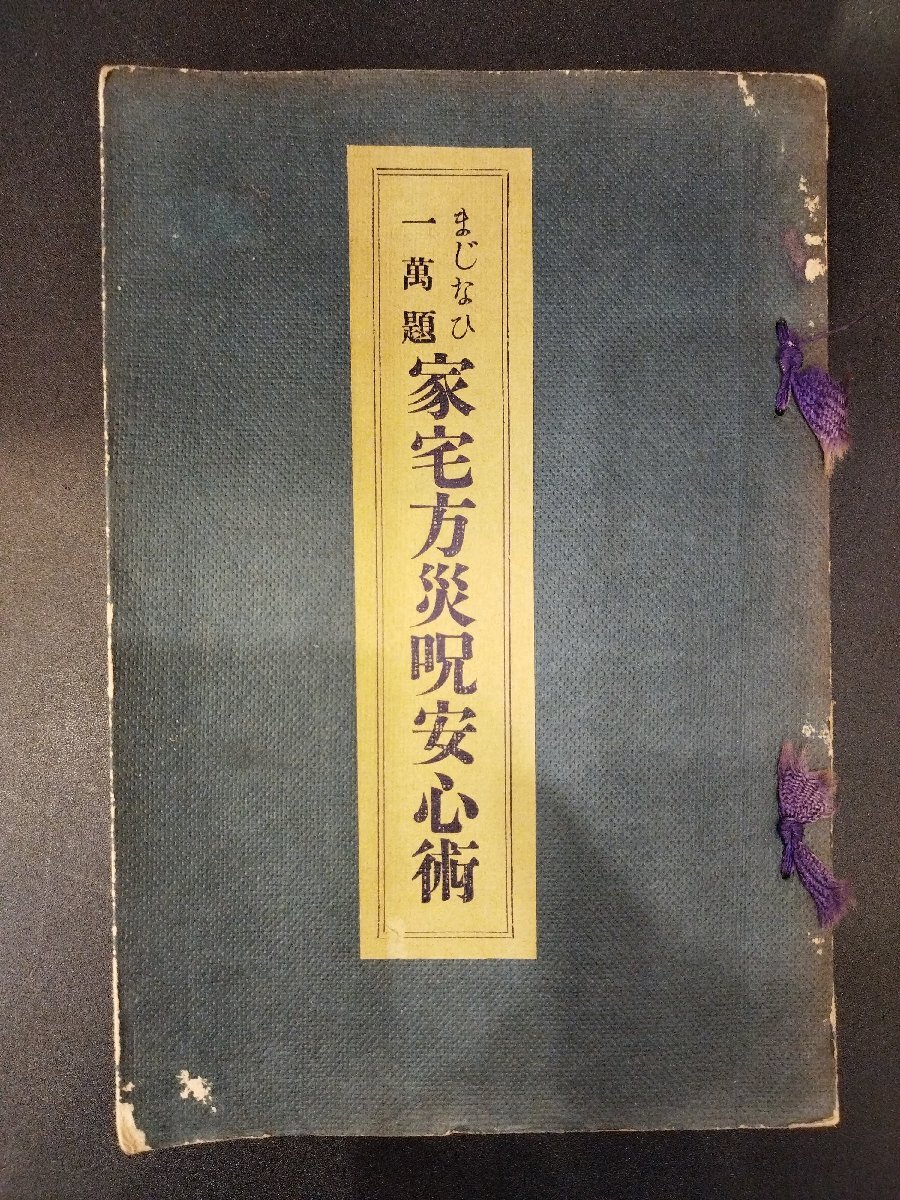 まじなひ
一萬題
家宅方災呪安心術